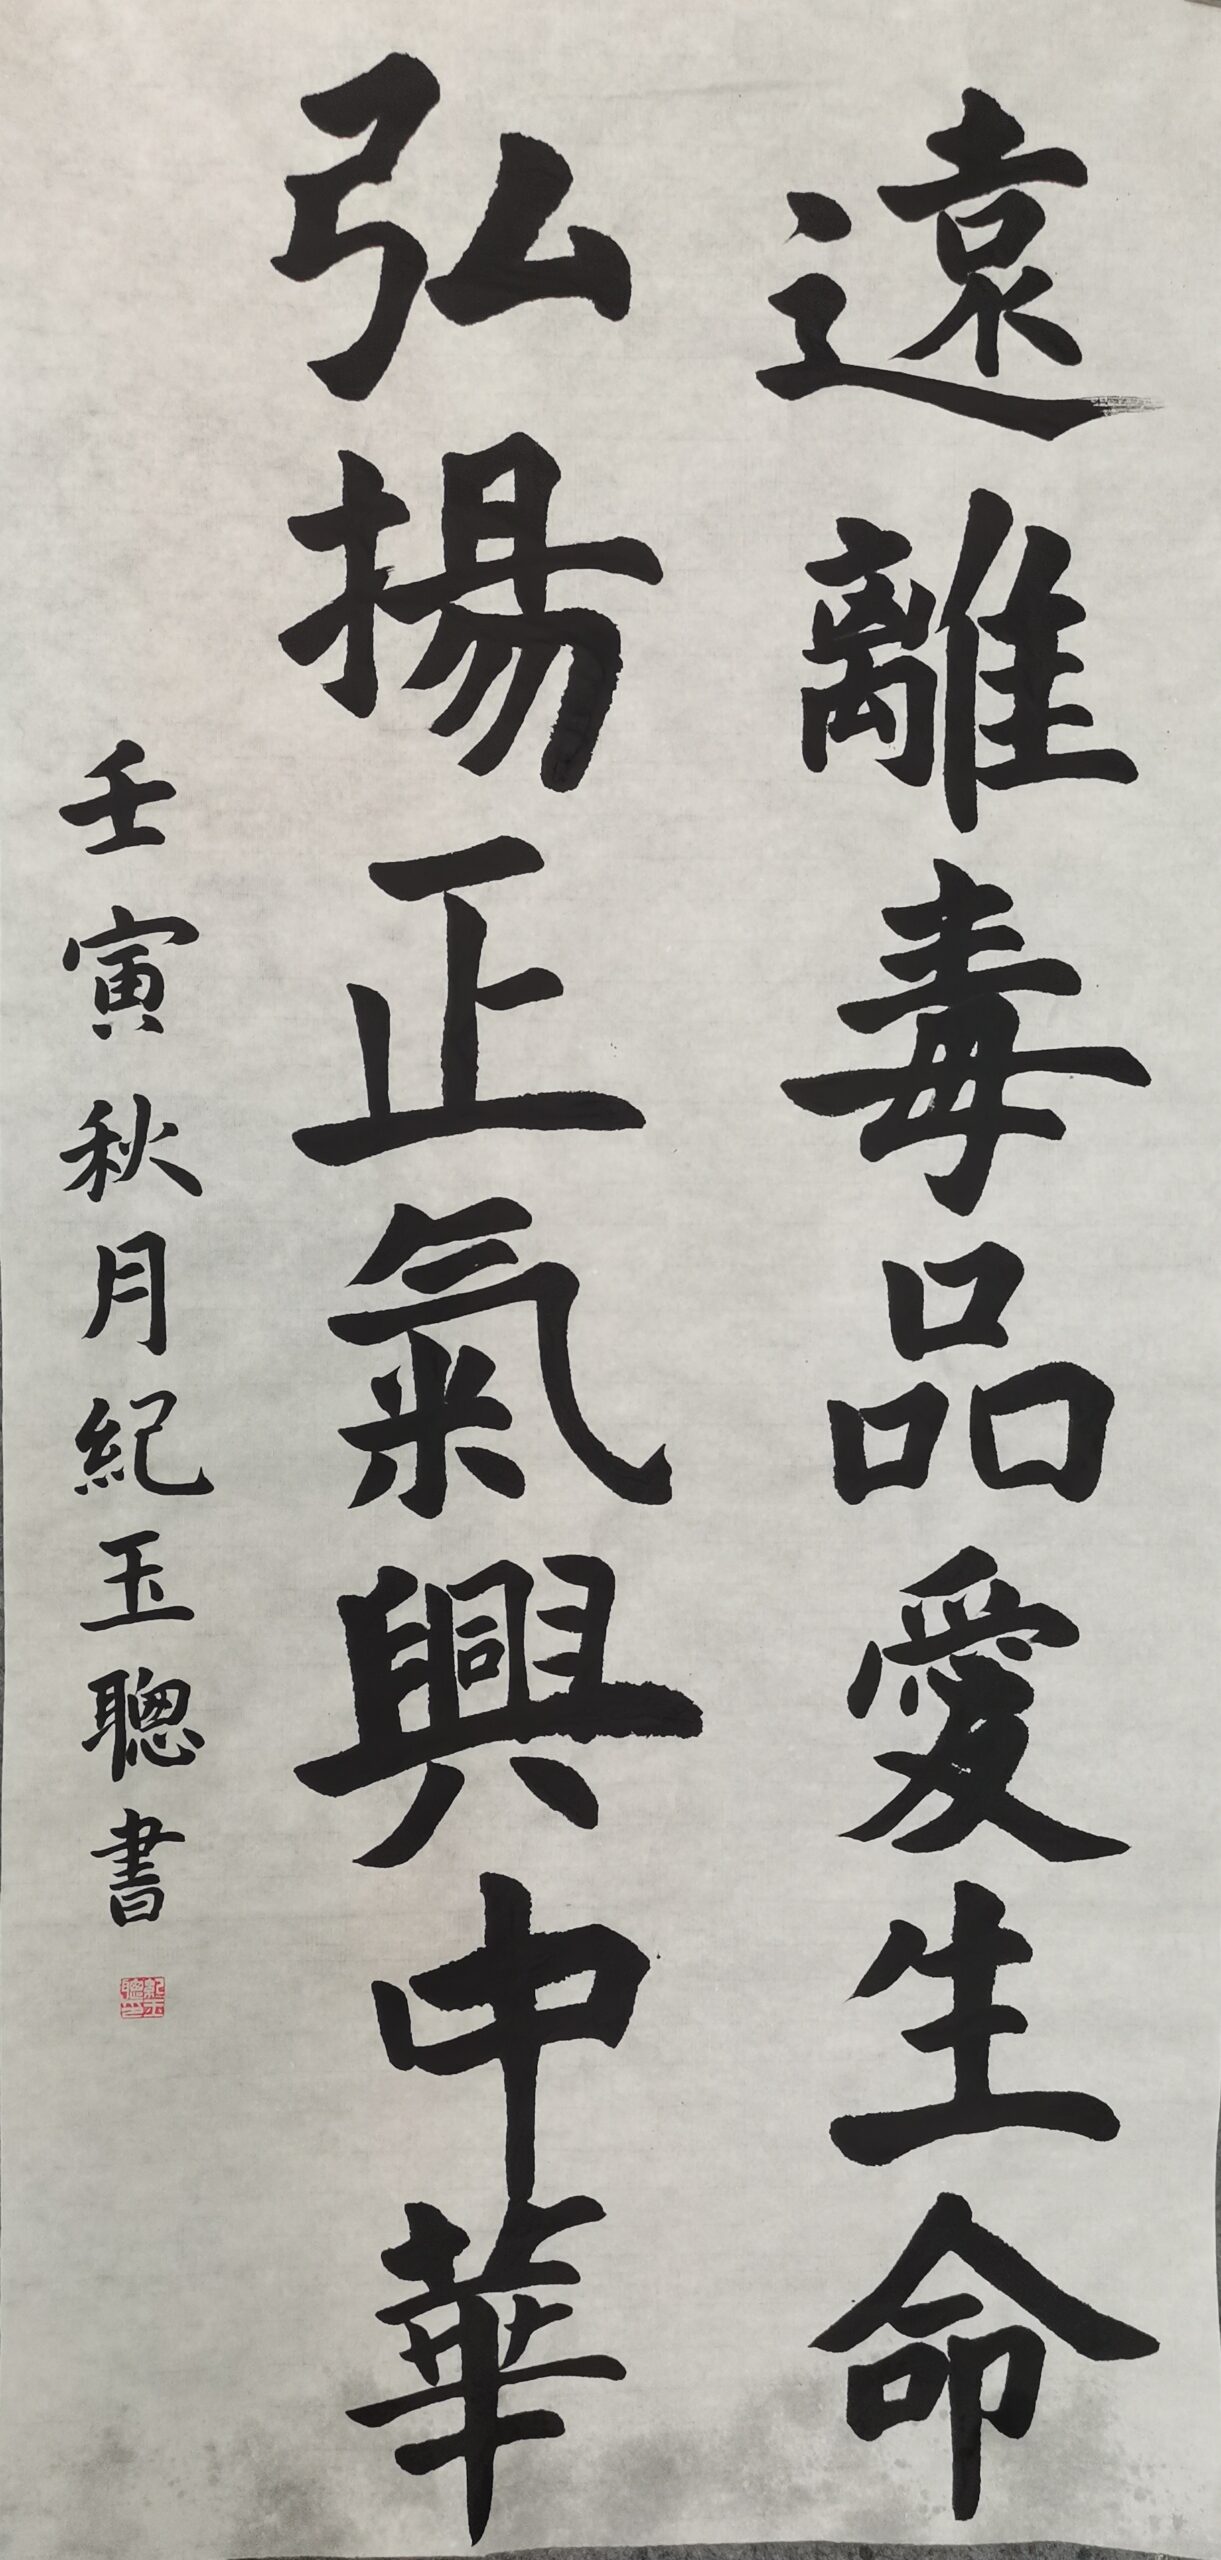 遠離毒品愛生命
弘揚正氣興中華
壬寅秋月紀玉聰書
紀玉聰印